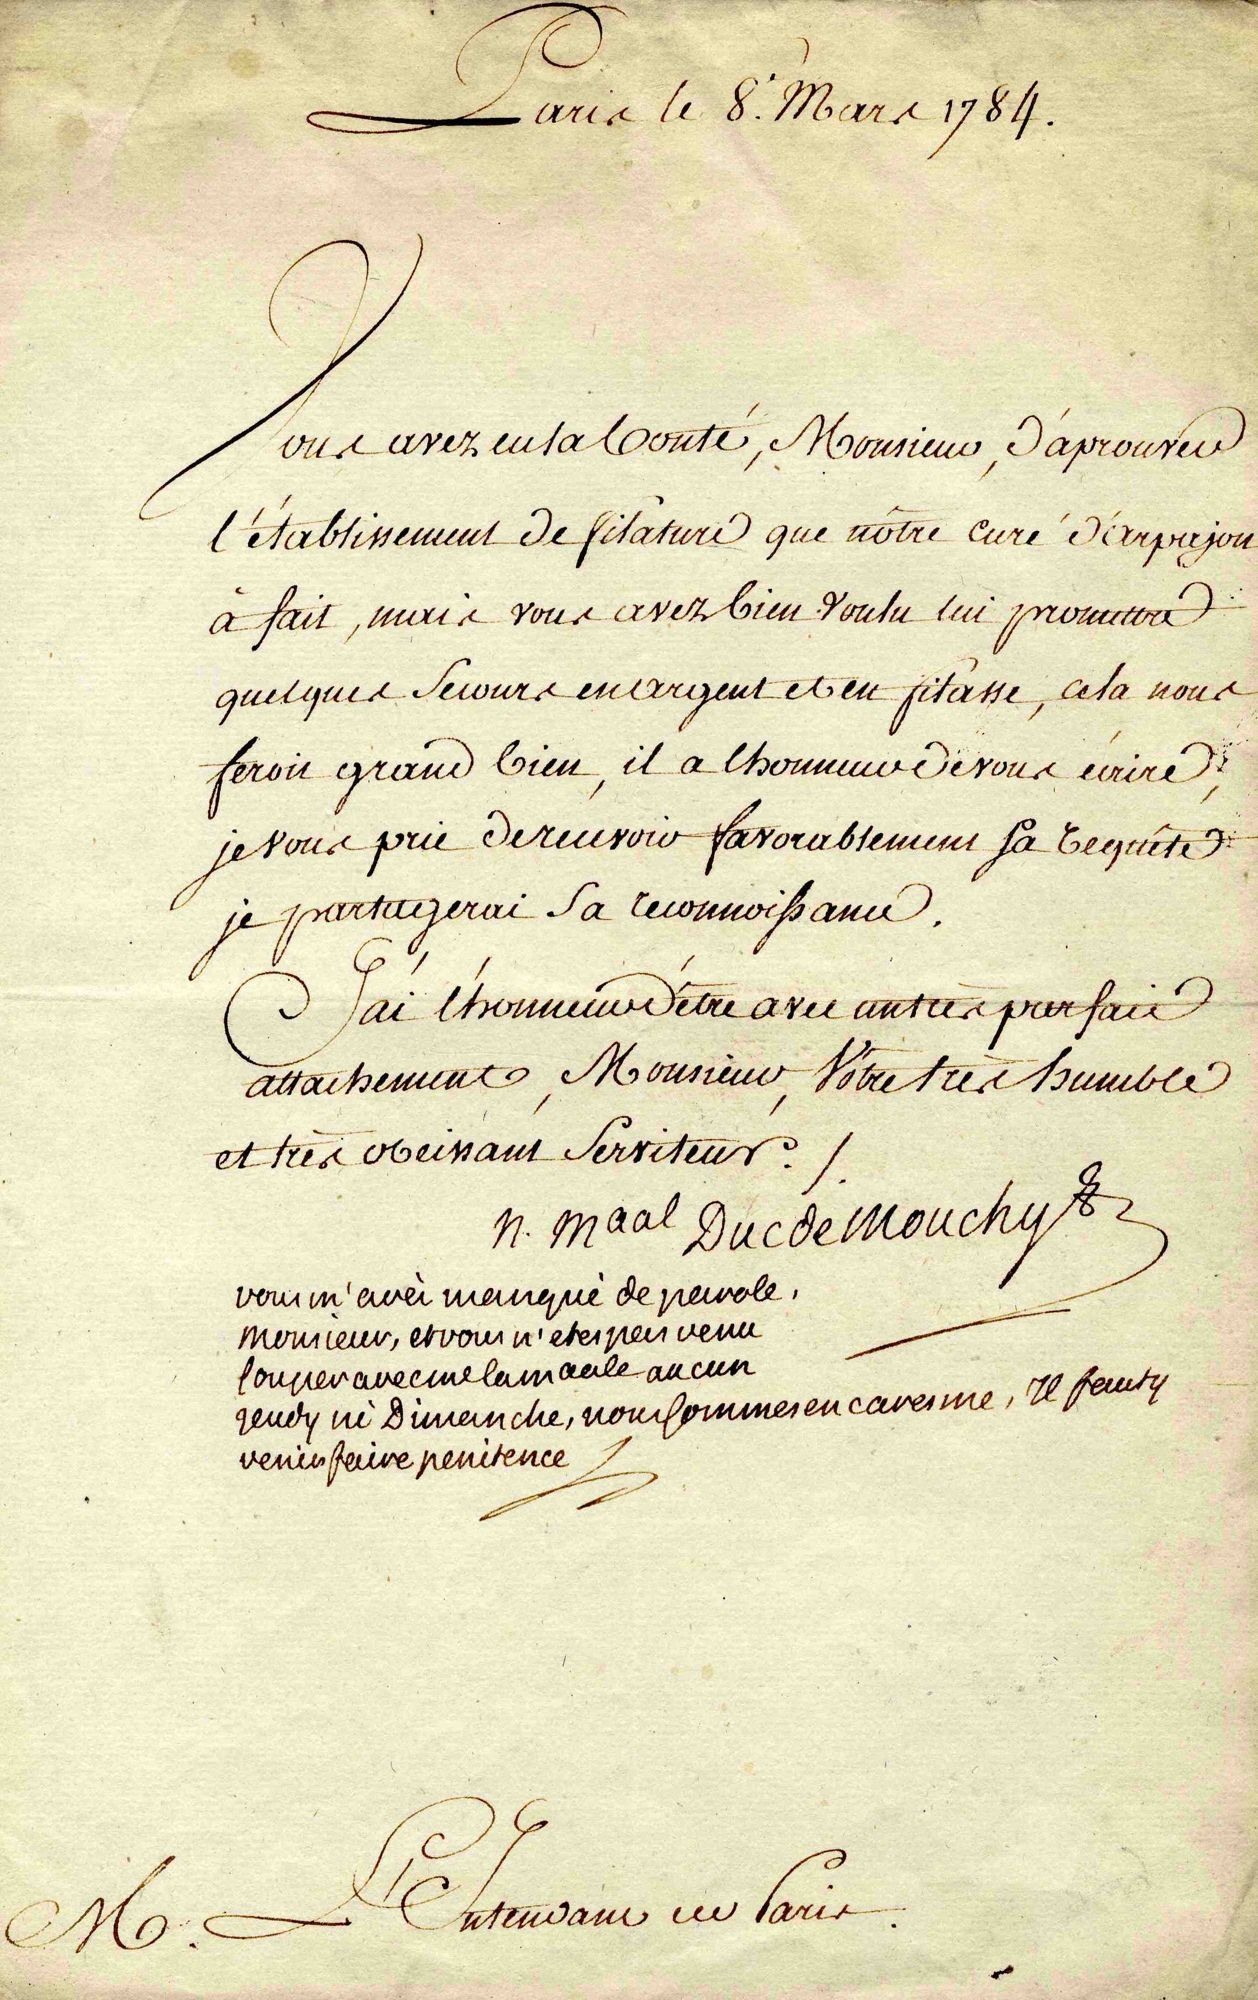 Paris le 8. Mars 1784.
Vous avez eu la bonté, Monsieur, d'aprouver
l'établissement de filature que nôtre curé d'arpajon
à fait, mais vous avez bien voulu lui promettre
quelques secours en argent et en filasse, cela nous
feroit grand bien, il a lhonneur de vous écrire,
je vous prie de recevoir favorablement sa requête
je partagerai sa reconnoissance.
J'ai l'honneur d'être avec un très parfait
attachement, Monsieur, Votre très humble
et très obeissant serviteur. /.
n. maal Duc de mouchy
vous m'avès manqué de parole,
monsieur, et vous n'etes pas venu
souper avec me la maale aucun
jeudy ni Dimanche, nous sommes en caresme, il faut y
venir faire penitence
M. L'Intendant de Paris.